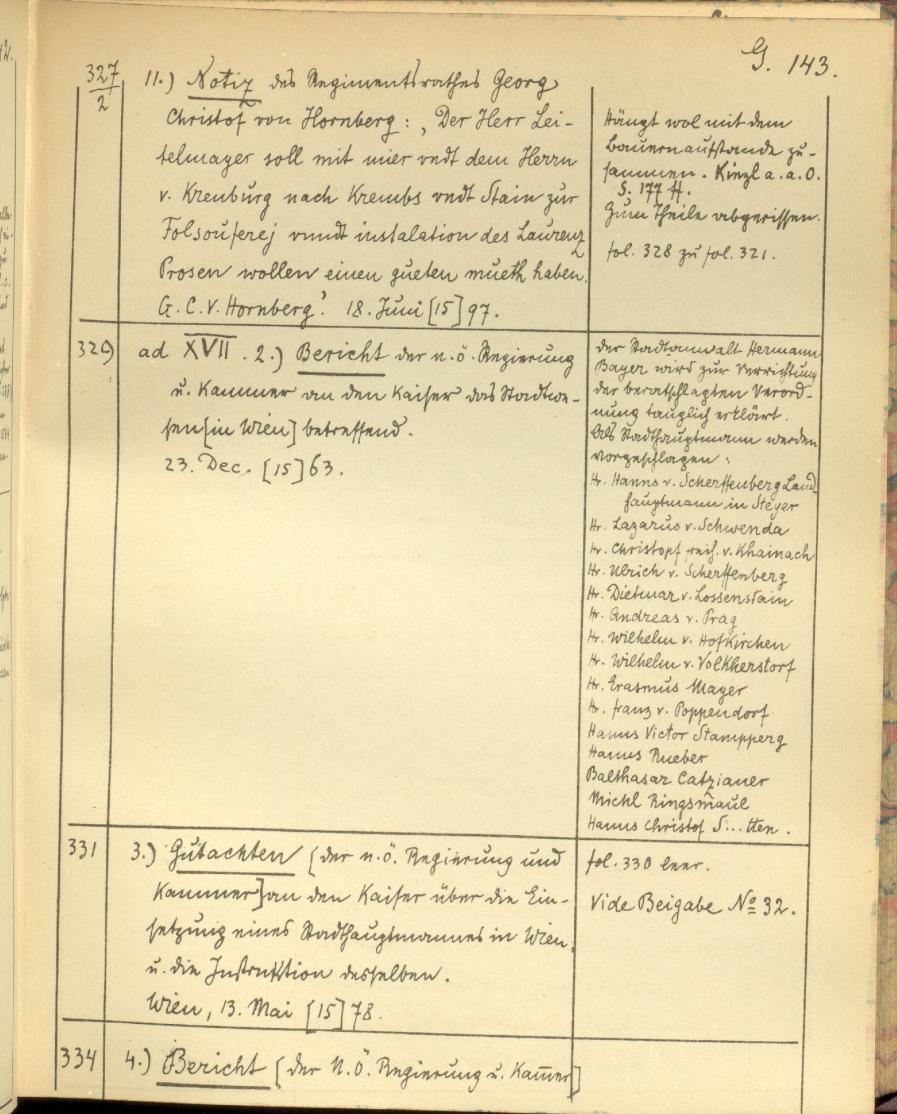 G. 143.
327
2
11.) Notiz des Regimentsrathes Georg
Christof von Hornberg: „Der Herr Lei-
telmayer soll mit mier vndt dem Herrn
v. Krenburg nach Krembs vndt Stain zur
vnndt instalation des Laurenz
Prosen wollen einen gueten mueth haben.
G. C. V. Hornberg“. 18. Juni [15]97.
Hängt wol mit dem
Bauernaufstande zu-
sammen. Kinzl a. a. O.
S. 177 ff.
Zum Theile abgerissen.
fol. 328 zu fol. 321.
329
ad XVII. 2.) Bericht der n. ö. Regierung
u. Kammer an den Kaiser das Stadtwe-
sen [in Wien] betreffend.
23. Dec. [15]63.
Der Stadtanwalt Hermann
Bayer wird zur Verrichtung
der beratschlagten Verord-
nung tauglich erklärt.
Als Stadthauptmann werden
vorgeschlagen:
Hr. Hanns v. Scherffenberg Land
hauptmann in Steyer
Hr. Lazarus v. Schwenda
Hr. Christoph v. Khainach
Hr. Ulrich v. Scherffenberg
Hr. Dietmar v. Lossenstain
Hr. Andreas v. Prag
Hr. Wilhelm v. Hofkirchen
Hr. Wilhelm v. Volkherstorf
Hr. Erasmus Mayer
Hr. Franz v. Poppendorf
Hanns Victor Stampperg
Hanns Rueber
Balthasar Catzianer
Michl Ringsmaul
Hanns Christof S...tten.
331
3.) Gutachten [der n. ö. Regierung und
Kammer] an den Kaiser über die Ein-
setzung eines Stadthauptmannes in Wien
u. die Instruktion desselben.
Wien, 13. Mai [15]78.
fol. 330 leer.
Vide Beigabe No 32.
334
4.) Bericht [der N. Ö. Regierung u. Kam̅er]